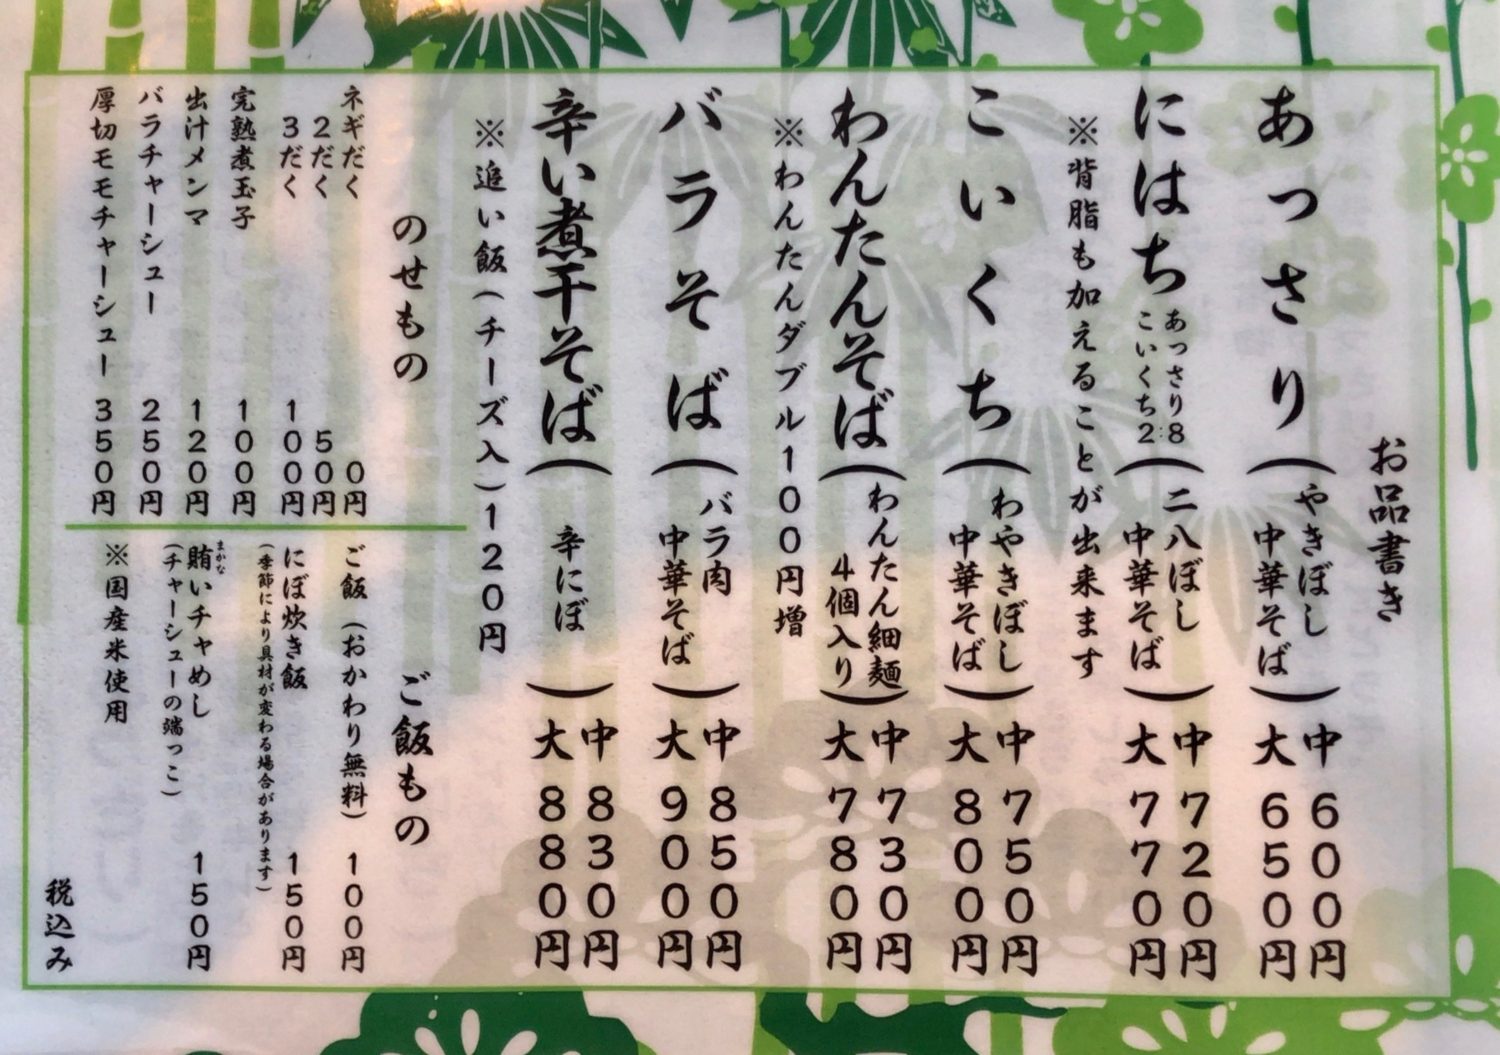 お品書き
あっさり(やきぼし中華そば)中600円
大650円
にはち あっさり8こいくち2(二八ぼし中華そば)中720円
大770円
※背脂も加えることが出来ます
こいくち(わやきぼし中華そば)中750円
大800円
わんたんそば(わんたん細麺4個入り)中730円
大780円
※わんたんダブル100円増
バラそば(バラ肉中華そば)中850円
大900円
辛い煮干そば(辛にぼ)中830円
大880円
※追い飯(チーズ入)120円
のせもの
ネギだく 0円
2だく 50円
3だく 100円
完熟煮玉子 100円
出汁メンマ 120円
バラチャーシュー 250円
厚切モモチャーシュー 350円
ご飯もの
ご飯(おかわり無料)100円
にぼ炊き飯 150円
(季節により具材が変わる場合があります)
賄いチャめし 150円
まかな
(チャーシューの端っこ)
※国産米使用
税込み